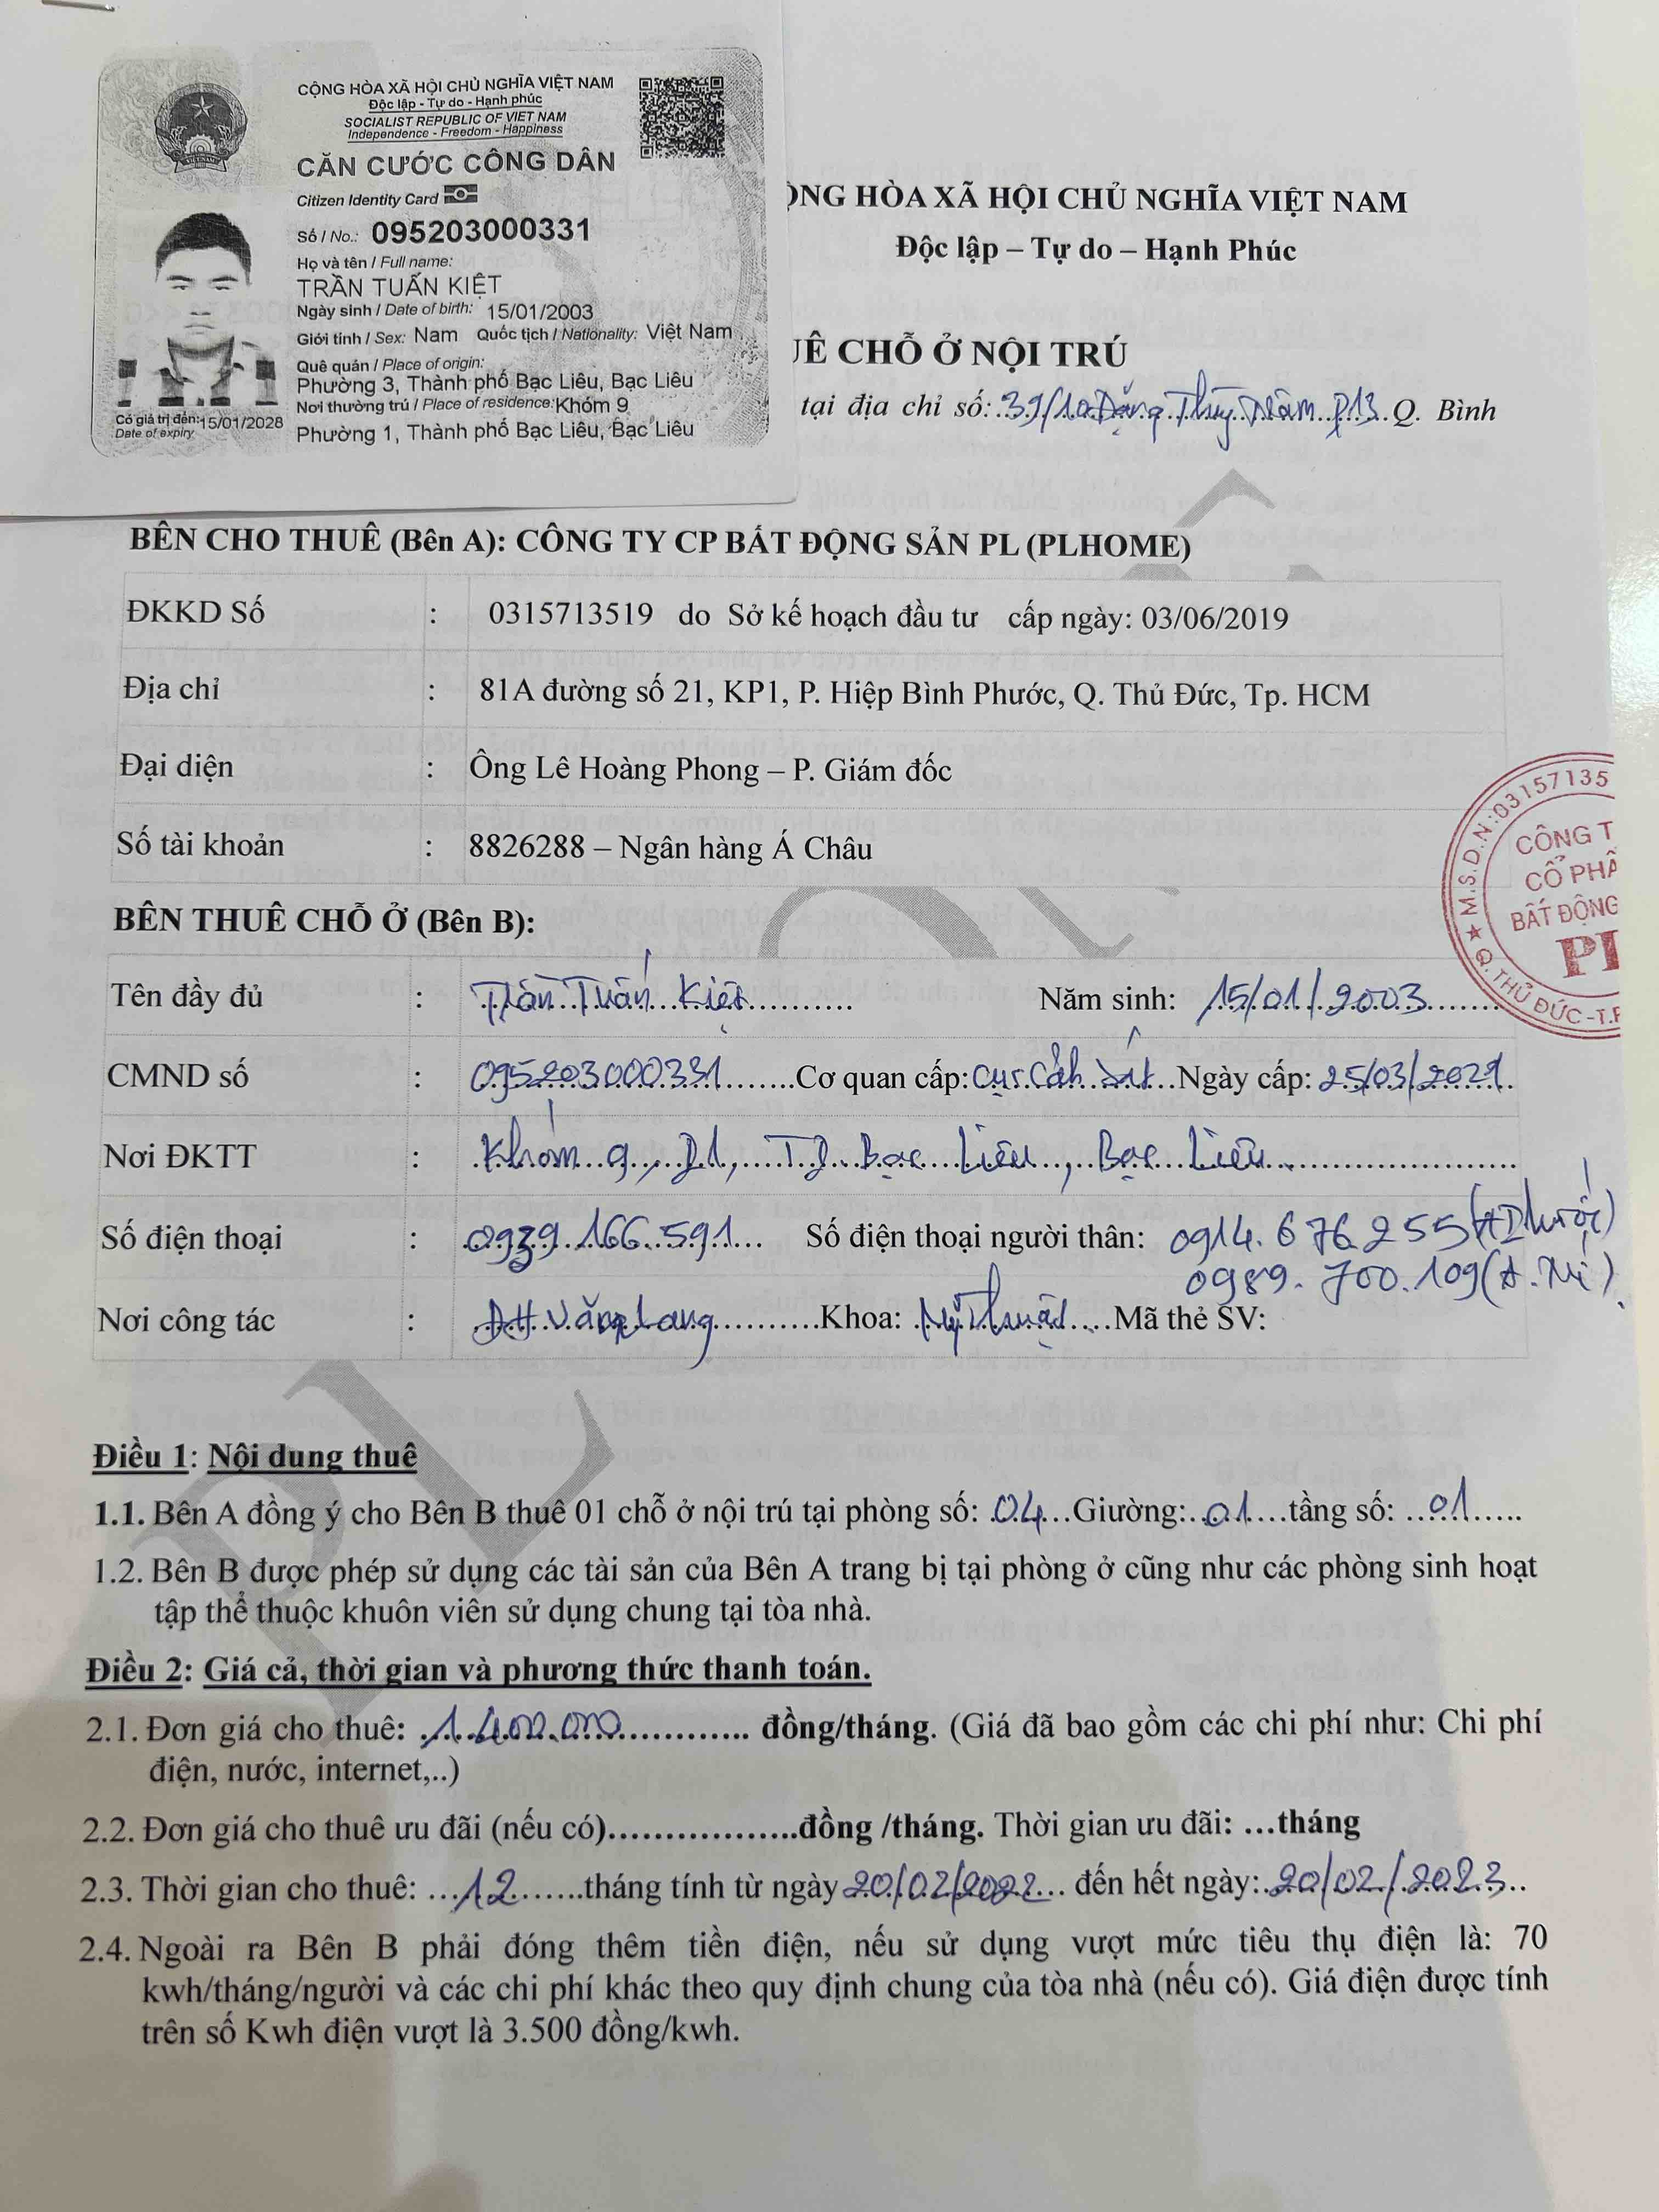 CỘNG HÒA XÃ HỘI CHỦ NGHĨA VIỆT NAM
Độc lập - Tự do - Hạnh phúc
SOCIALIST REPUBLIC OF VIET NAM
Independence - Freedom - Happiness
CĂN CƯỚC CÔNG DÂN
Citizen Identity Card
Số / No.: 095203000331
Họ và tên / Full name:
TRẦN TUẤN KIỆT
Ngày sinh / Date of birth: 15/01/2003
Giới tính / Sex: Nam Quốc tịch / Nationality: Việt Nam
Quê quán / Place of origin:
Phường 3, Thành phố Bạc Liêu, Bạc Liêu
Nơi thường trú / Place of residence: Khóm 9
Phường 1, Thành phố Bạc Liêu, Bạc Liêu
Có giá trị đến: 15/01/2028
Date of expiry
ỘNG HÒA XÃ HỘI CHỦ NGHĨA VIỆT NAM
Độc lập – Tự do – Hạnh Phúc
UÊ CHỖ Ở NỘI TRÚ
tại địa chỉ số: 39/10 Đặng Thùy Trâm P13 Q. Bình
BÊN CHO THUÊ (Bên A): CÔNG TY CP BẤT ĐỘNG SẢN PL (PLHOME)
ĐKKD Số : 0315713519 do Sở kế hoạch đầu tư cấp ngày: 03/06/2019
Địa chỉ : 81A đường số 21, KP1, P. Hiệp Bình Phước, Q. Thủ Đức, Tp. HCM
Đại diện : Ông Lê Hoàng Phong – P. Giám đốc
Số tài khoản : 8826288 – Ngân hàng Á Châu
M.S.D.N:03157135
CÔNG T
CỔ PHẦ
BẤT ĐỘNG
PL
Q. THỦ ĐỨC -T.P
BÊN THUÊ CHỖ Ở (Bên B):
Tên đầy đủ : Trần Tuấn Kiệt Năm sinh: 15/01/2003
CMND số : 095203000331 Cơ quan cấp: Cục Cảnh sát Ngày cấp: 25/03/2021
Nơi ĐKTT : Khóm 9, P1, TP Bạc Liêu, Bạc Liêu
Số điện thoại : 0939.166.591 Số điện thoại người thân: 0914.676.255
0989.700.109
Nơi công tác : ĐH Văn Lang Khoa: Mỹ Thuật Mã thẻ SV:
Điều 1: Nội dung thuê
1.1. Bên A đồng ý cho Bên B thuê 01 chỗ ở nội trú tại phòng số: 04 Giường: 01 tầng số: 01
1.2. Bên B được phép sử dụng các tài sản của Bên A trang bị tại phòng ở cũng như các phòng sinh hoạt
tập thể thuộc khuôn viên sử dụng chung tại tòa nhà.
Điều 2: Giá cả, thời gian và phương thức thanh toán.
2.1. Đơn giá cho thuê: 1.400.000 đồng/tháng. (Giá đã bao gồm các chi phí như: Chi phí
điện, nước, internet,..)
2.2. Đơn giá cho thuê ưu đãi (nếu có)..................đồng /tháng. Thời gian ưu đãi: ...tháng
2.3. Thời gian cho thuê: 12 tháng tính từ ngày 20/02/2022 đến hết ngày: 20/02/2023
2.4. Ngoài ra Bên B phải đóng thêm tiền điện, nếu sử dụng vượt mức tiêu thụ điện là: 70
kwh/tháng/người và các chi phí khác theo quy định chung của tòa nhà (nếu có). Giá điện được tính
trên số Kwh điện vượt là 3.500 đồng/kwh.